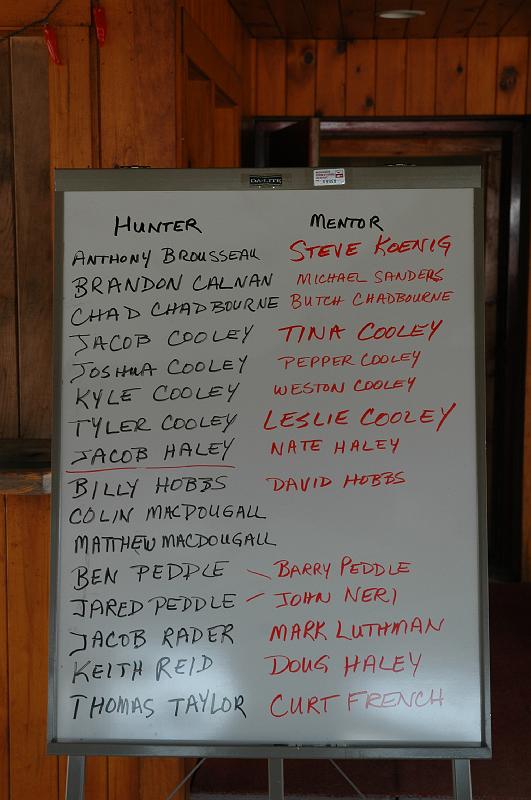 DA-LITE
HUNTER MENTOR
ANTHONY BROUSSEAU STEVE KOENIG
BRANDON CALNAN MICHAEL SANDERS
CHAD CHADBOURNE BUTCH CHADBOURNE
JACOB COOLEY TINA COOLEY
JOSHUA COOLEY PEPPER COOLEY
KYLE COOLEY WESTON COOLEY
TYLER COOLEY LESLIE COOLEY
JACOB HALEY NATE HALEY
BILLY HOBBS DAVID HOBBS
COLIN MACDOUGALL
MATTHEW MACDOUGALL
BEN PEDDLE BARRY PEDDLE
JARED PEDDLE JOHN NERI
JACOB RADER MARK LUTHMAN
KEITH REID DOUG HALEY
THOMAS TAYLOR CURT FRENCH